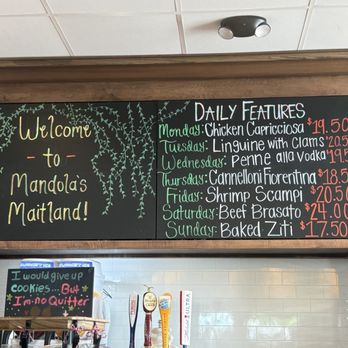 Welcome
- to -
Mandola's
Maitland!
DAILY FEATURES
Monday: Chicken Capricciosa $19.50
Tuesday: Linguine with Clams $20.5
Wednesday: Penne alla Vodka $19.5
Thursday: Cannelloni Fiorentina $18.5
Friday: Shrimp Scampi $20.50
Saturday: Beef Brasato $24.00
Sunday: Baked Ziti $17.50
I would give up
cookies... But
I'm no Quitter
ULTRA